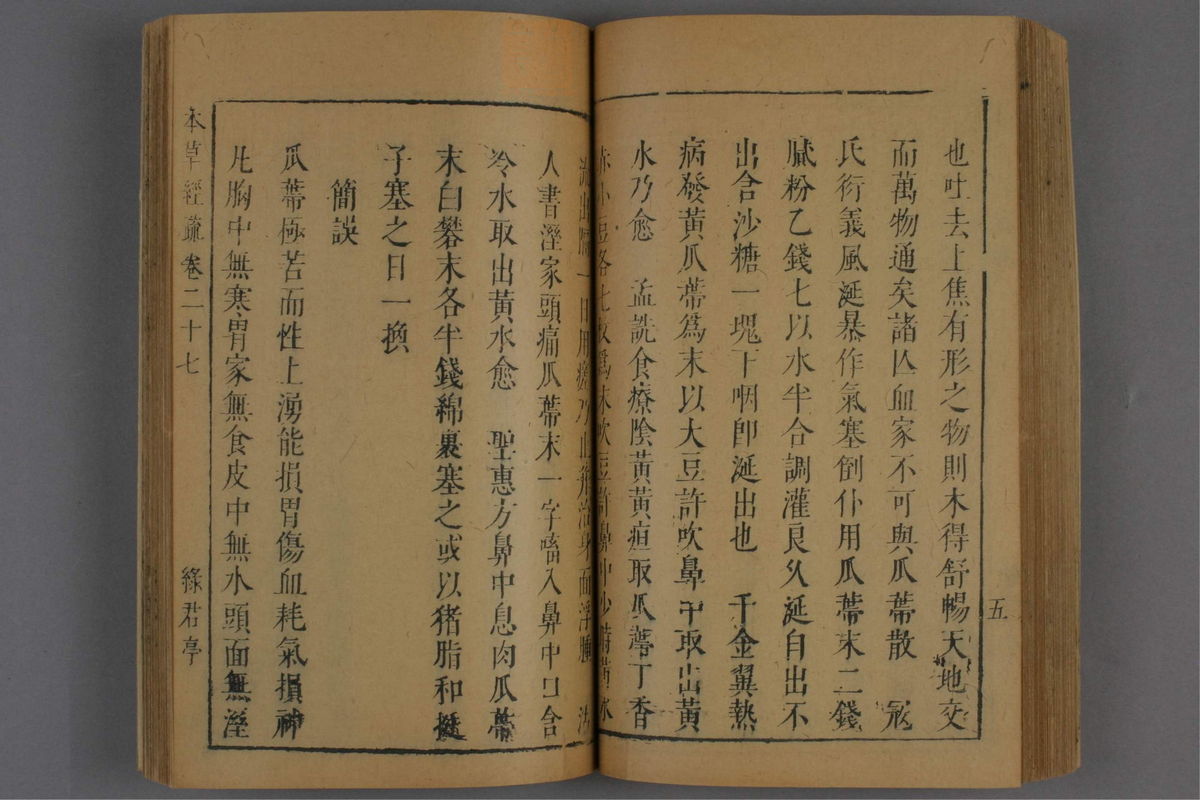 五
也吐去上焦有形之物則木得舒暢天地交
而萬物通矣諸亾血家不可與瓜蔕散　冦
氏衍義風涎暴作氣塞倒仆用瓜蔕末二錢
膩粉乙錢七以水半合調灌良久涎自出不
出含沙糖一塊下咽卽涎出也　千金翼熱
病發黃瓜蔕爲末以大豆許吹鼻中取出黃
水乃愈　孟詵食療陰黃黃疸取瓜蔕丁香
赤小豆各七枚爲末吹豆許鼻中少時黃水
流出隔一日用瘥乃止幷治身面浮腫　活
人書溼家頭痛瓜蔕末一字㗜入鼻中口含
冷水取出黃水愈　聖惠方鼻中息肉瓜蔕
末白礬末各半錢綿裹塞之或以猪脂和挺
子塞之日一換
簡誤
瓜蔕極苦而性上湧能損胃傷血耗氣損神
凡胸中無寒胃家無食皮中無水頭面無溼
本草經疏卷二十七
綠君亭